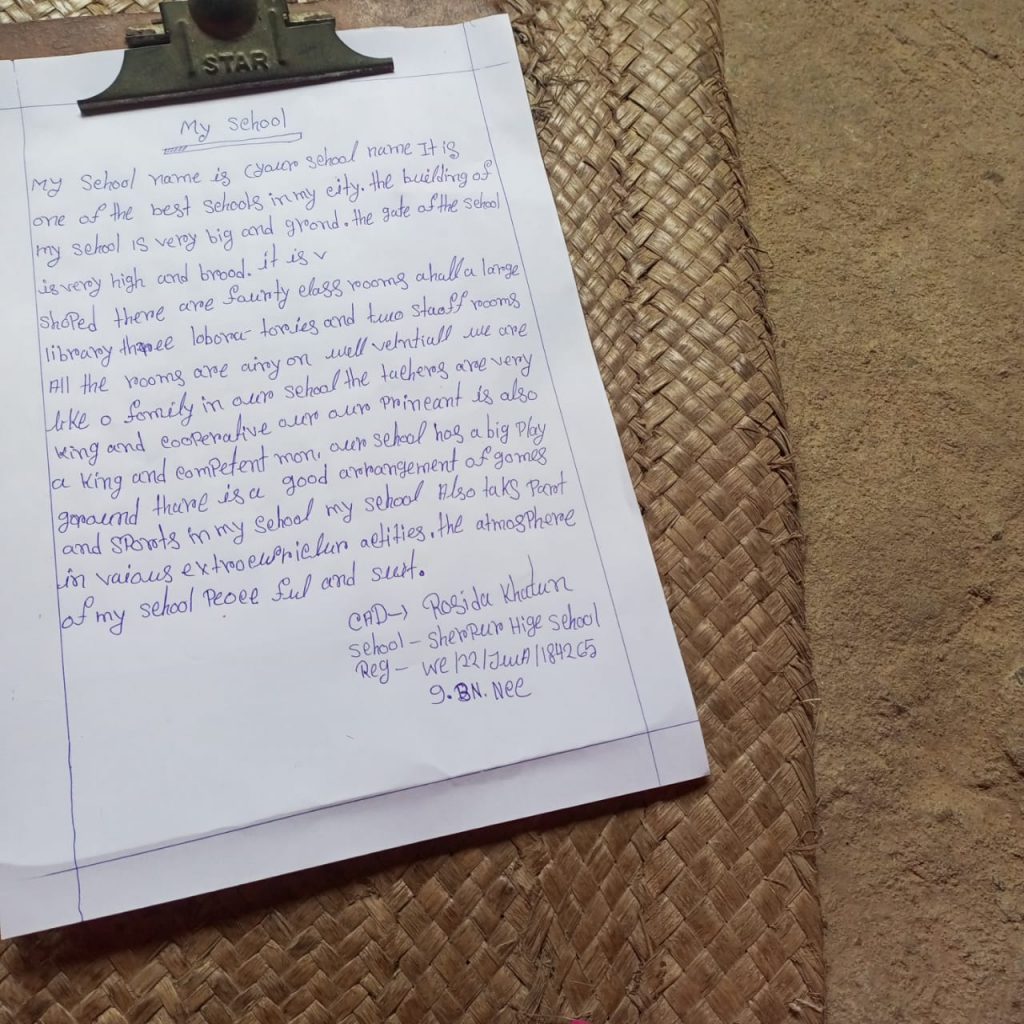 STAR
My school
My School name is (your school name It is
one of the best schools in my city. the building of
my school is very big and grond. the gate of the school
is very high and brood. it is v
shoped there are fourty class rooms a hall a large
library three lobora-tories and two staff rooms
All the rooms are airy on well velntiall we are
like o fomily in our school the taehers are very
king and cooperative our our prineant is also
a king and competent mon, our school has a big play
goraund thare is a good arrangement of gomes
and sports in my school my school Also taks Part
in vaiaus extrocupriclur aetities. the atmosphere
of my school Peoee ful and suit.
CAD→ Rosida Khatun
School - Sherpur Hige School
Reg - WE/22/JwA/184265
9. BN. Nec